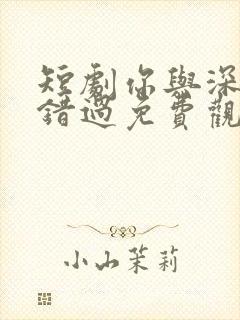 短劇你與深
錯過免費觀
小山茉莉